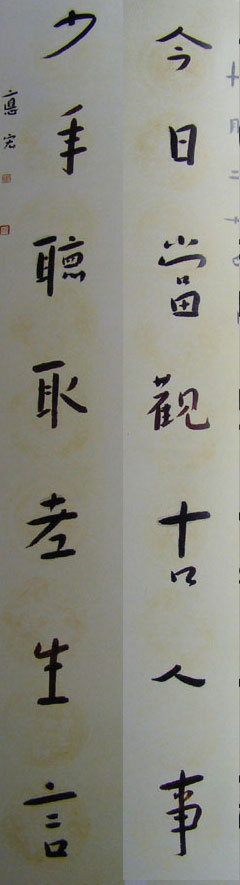 今日當觀古人事
少年聽取老生言